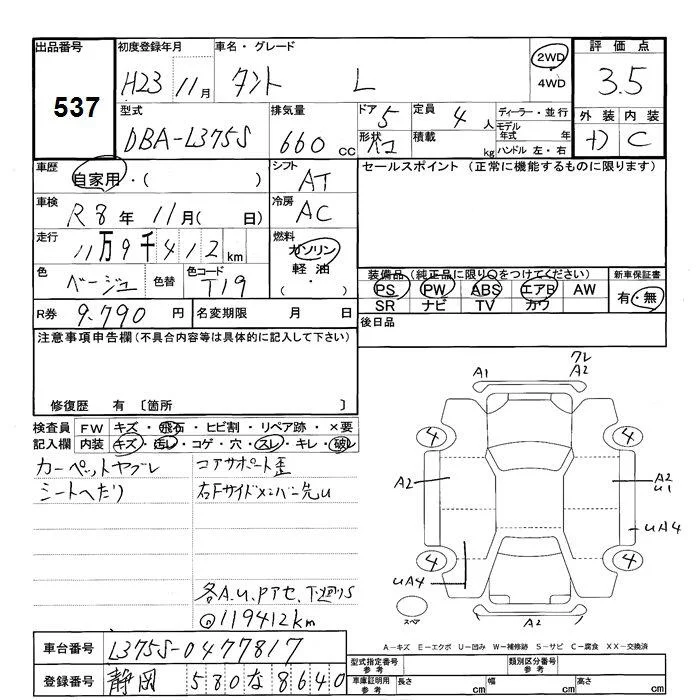 出品番号 初度登録年月 車名・グレード 評価点
537 H23 11月 タント L 2WD・4WD 3.5
型式 排気量 ドア 5 定員 4人 ディーラー・並行 外装 内装
DBA-L375S 660cc 形状 積載 kg モデル年式 年 C
ハンドル 左・右
車歴 自家用・( ) シフト AT セールスポイント (正常に機能するものに限ります)
車検 R8年 11月( 日) 冷房 AC
走行 11万9千412km 燃料 ガソリン 軽油 ( ・ )
色 ベージュ 色替 色コード T19 装備品 (純正品に限り○をつけてください) 新車保証書
PS PW ABS エアB AW 有・無
SR ナビ TV カワ
R券 9.790円 名変期限 月 日 後日品
注意事項申告欄 (不具合内容等は具体的に記入して下さい)
修復歴 有 〔箇所 〕
検査員 FW キズ・飛石・ヒビ割・リペア跡・×要
記入欄 内装 キズ・汚レ・コゲ・穴・スレ・キレ・破レ
カーペットヤブレ コアサポート歪
シートヘたり 右Fサイドメンバー先u
各A.U.Pアセ.下廻りS
@119412km
A1 ワレ A2
4 4
A2 A2 U1
UA4
4 4
UA4
スペア A2
A-キズ E-エクボ U-凹み W-補修跡 S-サビ C-腐食 XX-交換済
車台番号 L375S-0477817
型式指定番号 参考 類別区分番号 参考
登録番号 静岡 580な8640
車庫証明用 参考 長さ cm 幅 cm 高さ cm